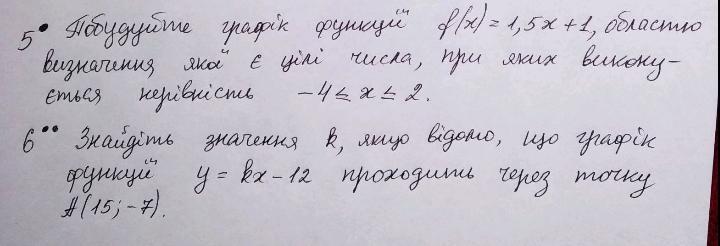 5• Побудуйте графік функції f(x) = 1,5x + 1, областю
визначення якої є цілі числа, при яких викону-
ється нерівність −4 ≤ x ≤ 2.
6•• Знайдіть значення k, якщо відомо, що графік
функції y = kx − 12 проходить через точку
A(15; −7).